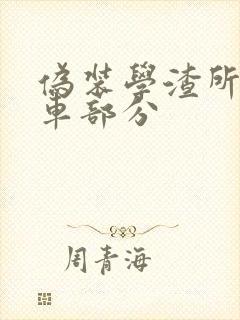 偽裝學渣所
車部分
周青海